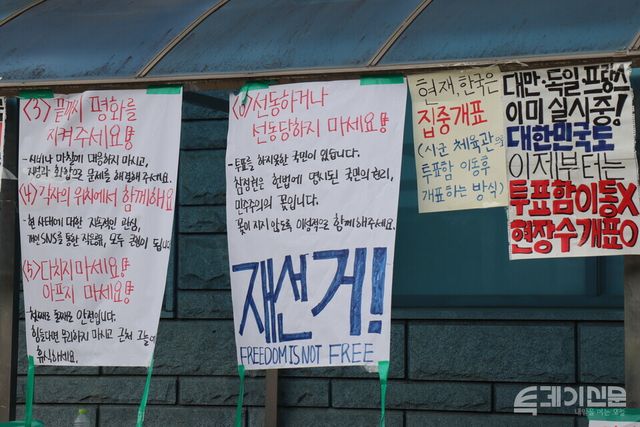 (3) 끝까지 평화를
지켜주세요!!
- 시비나 마찰에 대응하지 마시고,
차분과 화합으로 문제를 해결해주세요.
(4) 각자의 위치에서 함께해요
- 현 사태에 대한 지속적인 관심,
개인 SNS를 통한 작은 움직임, 모두 큰 힘이 됩니다
(5) 다치지 마세요!!
아프지 마세요!!
- 첫째도 둘째도 안전입니다.
힘들다면 무리하지 마시고 근처 그늘에서
휴식하세요.
(6) 선동하거나
선동당하지 마세요!!
- 투표를 하지 못한 국민이 있습니다.
참정권은 헌법에 명시된 국민의 권리,
민주주의의 꽃입니다.
꽃이 지지 않도록 이성적으로 함께해주세요.
재선거!
FREEDOM IS NOT FREE
현재, 한국은
집중개표
(시군 체육관으로
투표함 이동후
개표하는 방식)
대만·독일·프랑스
이미 실시중!
대한민국도
이제부터는
투표함이동X
현장수개표O
투데이신문
내일을 여는 오늘